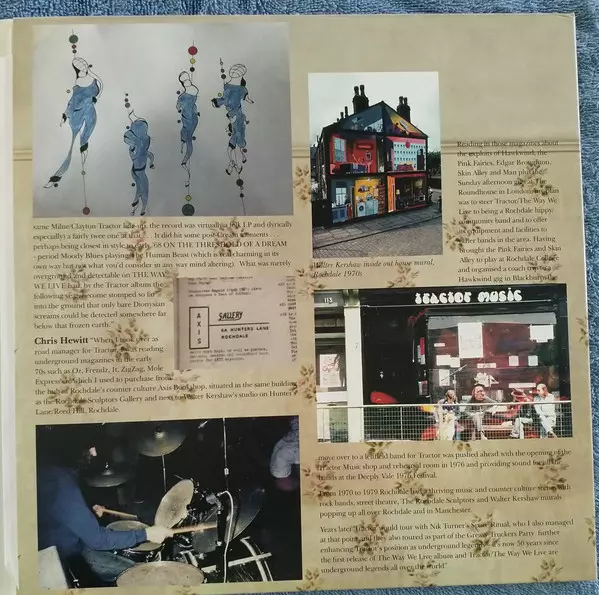 same Milne/Clayton Tractor line-up, the record was virtually a first LP and (lyrically
especially) a fairly twee one at that. It did hit some post-Cream moments
perhaps being closest in style to a '68 ON THE THRESHOLD OF A DREAM
- period Moody Blues playing The Human Beast (which is real charming in its
own way but not what you'd consider in any way mind altering). What was merely
overgrind and detectable on THE WAY
WE LIVE had, by the Tractor album the
following year become stomped so far
into the ground that only bare Dionysian
screams could be detected somewhere far
below that frozen earth."
Chris Hewitt "When I took over as
road manager for Tractor I was reading
underground magazines in the early
70s such as Oz, Frendz, It, ZigZag, Mole
Express which I used to purchase from
the hub of Rochdale's counter culture Axis Book shop, situated in the same building
as the Rochdale Sculptors Gallery and next to Walter Kershaw's studio on Hunter's
Lane/Reed Hill, Rochdale.
AXIS
GALLERY
6A HUNTERS LANE
ROCHDALE
Walter Kershaw inside out house mural,
Rochdale 1970s
Reading in those magazines about
the exploits of Hawkwind, the
Pink Fairies, Edgar Broughton,
Skin Alley and Man playing
Sunday afternoon gigs at The
Roundhouse in London my plan
was to steer Tractor/The Way We
Live to being a Rochdale hippy
community band and to offer
its equipment and facilities to
other bands in the area. Having
brought the Pink Fairies and Skin
Alley to play at Rochdale College
and organised a coach trip to a
Hawkwind gig in Blackburn the
113
tractor music
move over to a left field band for Tractor was pushed ahead with the opening of the
Tractor Music shop and rehearsal room in 1976 and providing sound for all the
bands at the Deeply Vale 1976 Festival.
From 1970 to 1979 Rochdale had a thriving music and counter culture scene with
rock bands, street theatre, The Rochdale Sculptors and Walter Kershaw murals
popping up all over Rochdale and in Manchester.
Years later Tractor would tour with Nik Turner's Space Ritual, who I also managed
at that point and they also toured as part of the Greasy Truckers Party further
enhancing Tractor's position as underground legends. It's now 50 years since
the first release of The Way We Live album and Tractor/The Way We Live are
underground legends all over the world"